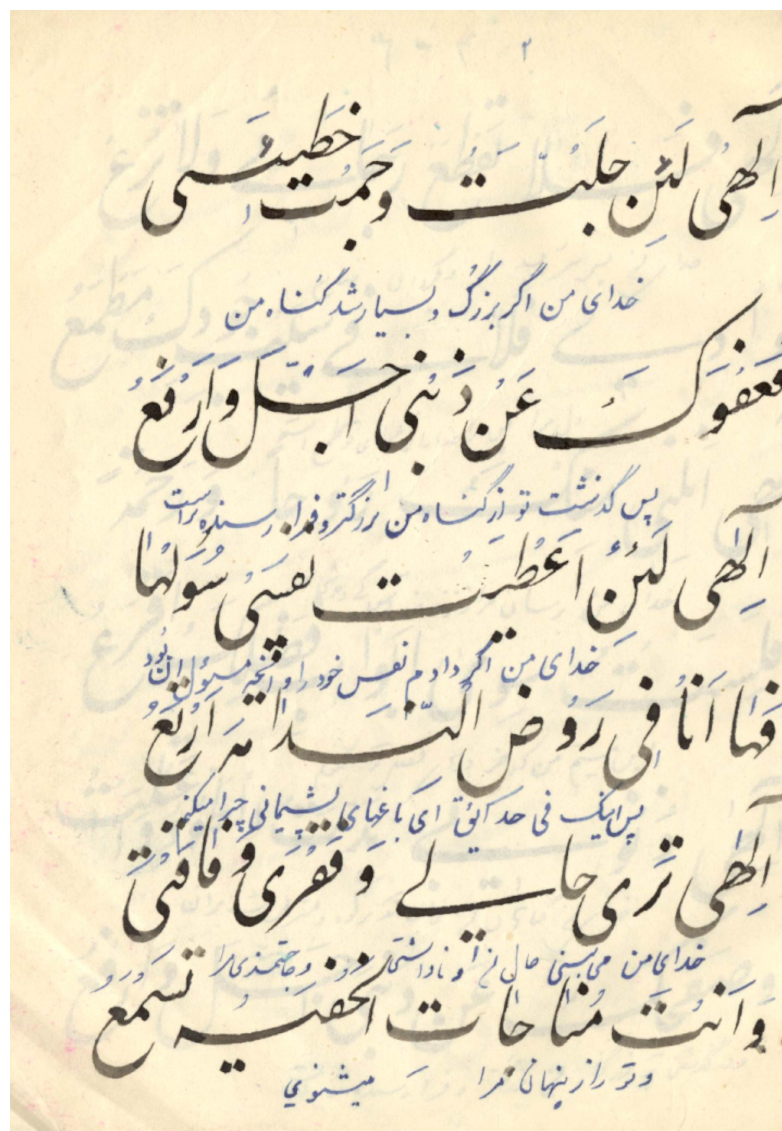 ۲
الٰهی لَئِن جَلَّت وَجَمَّت خَطیئَتی
خدای من اگر بزرگ و بسیار شد گناه من
فَعَفوُکَ عَنْ ذَنْبی اَجَلُّ وَاَرْفَعُ
پس گذشت تو از گناه من بزرگتر و فرا رسنده است
الٰهی لَئِنْ اَعْطَیْتُ نَفْسی سُؤلَها
خدای من اگر دادم نفس خود را و آنچه مسئول آن بود
فَها اَنَا فی رَوْضِ النَّدامَةِ اَرْتَعُ
پس اینک فی حدائق ای باغهای پشیمانی چرا میکنم
الٰهی تَری حالی وَ فَقْری وَ فاقَتی
خدای من می بینی حال من و ناداشتی و حاجتمندی را
وَ اَنْتَ مُناجاتِ الخَفیَّه تَسْمَعُ
و تو راز پنهان مرا میشنوی